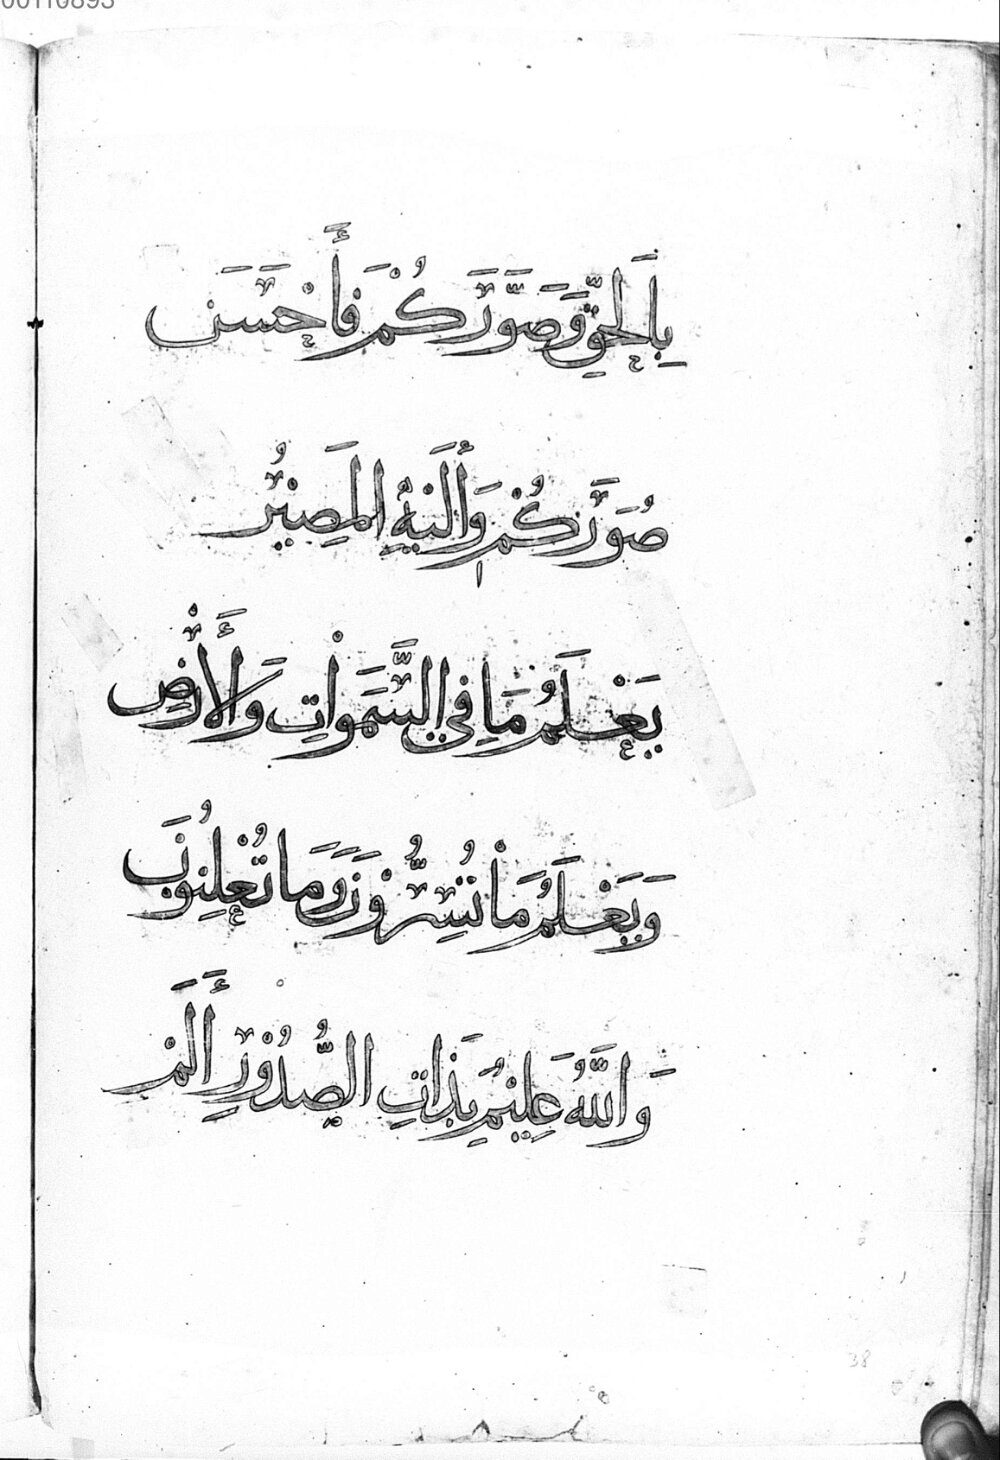 00110893
بِالْحَقِّ وَصَوَّرَكُمْ فَأَحْسَنَ
صُوَرَكُمْ وَإِلَيْهِ الْمَصِيْرُ
يَعْلَمُ مَا فِي السَّمَوَاتِ وَالْأَرْضِ
وَيَعْلَمُ مَا تُسِرُّوْنَ وَمَا تُعْلِنُوْنَ
وَاللَّهُ عَلِيْمٌ بِذَاتِ الصُّدُوْرِ أَلَمْ
38